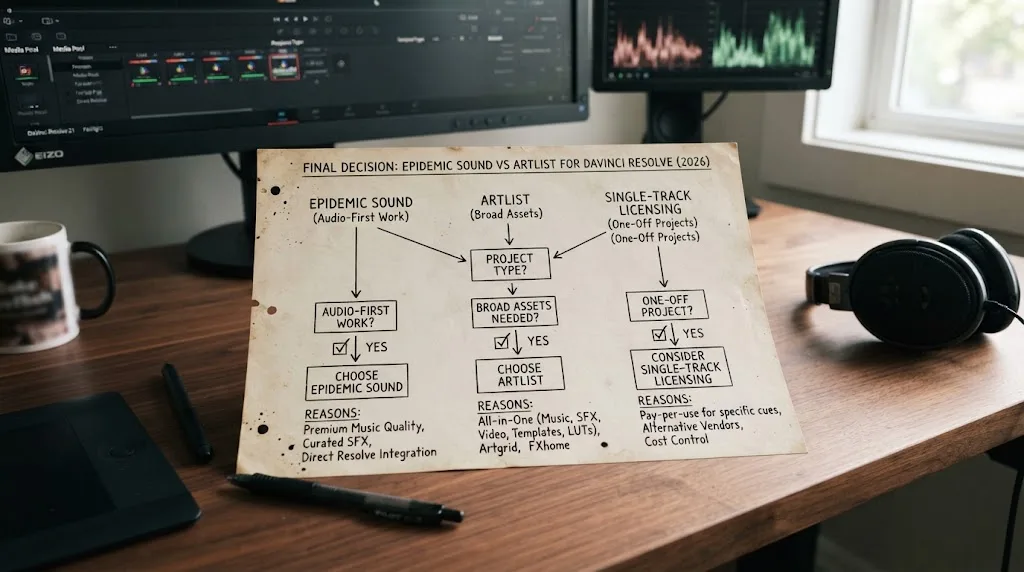 Media Pool
Media Pool
EIZO
FINAL DECISION: EPIDEMIC SOUND VS ARTLIST FOR DAVINCI RESOLVE (2026)
EPIDEMIC SOUND
(Audio-First Work)
ARTLIST
(Broad Assets)
SINGLE-TRACK
LICENSING
(One-Off Projects)
(One-Off Projects)
PROJECT
TYPE?
AUDIO-FIRST
WORK?
YES
CHOOSE
EPIDEMIC SOUND
REASONS:
Premium Music Quality,
Curated SFX,
Direct Resolve Integration
BROAD ASSETS
NEEDED?
YES
CHOOSE
ARTLIST
REASONS:
All-in-One (Music, SFX,
Video, Templates, LUTs),
Artgrid, FXhome
ONE-OFF
PROJECT?
YES
CONSIDER
SINGLE-TRACK
LICENSING
REASONS:
Pay-per-use for specific cues,
Alternative Vendors,
Cost Control